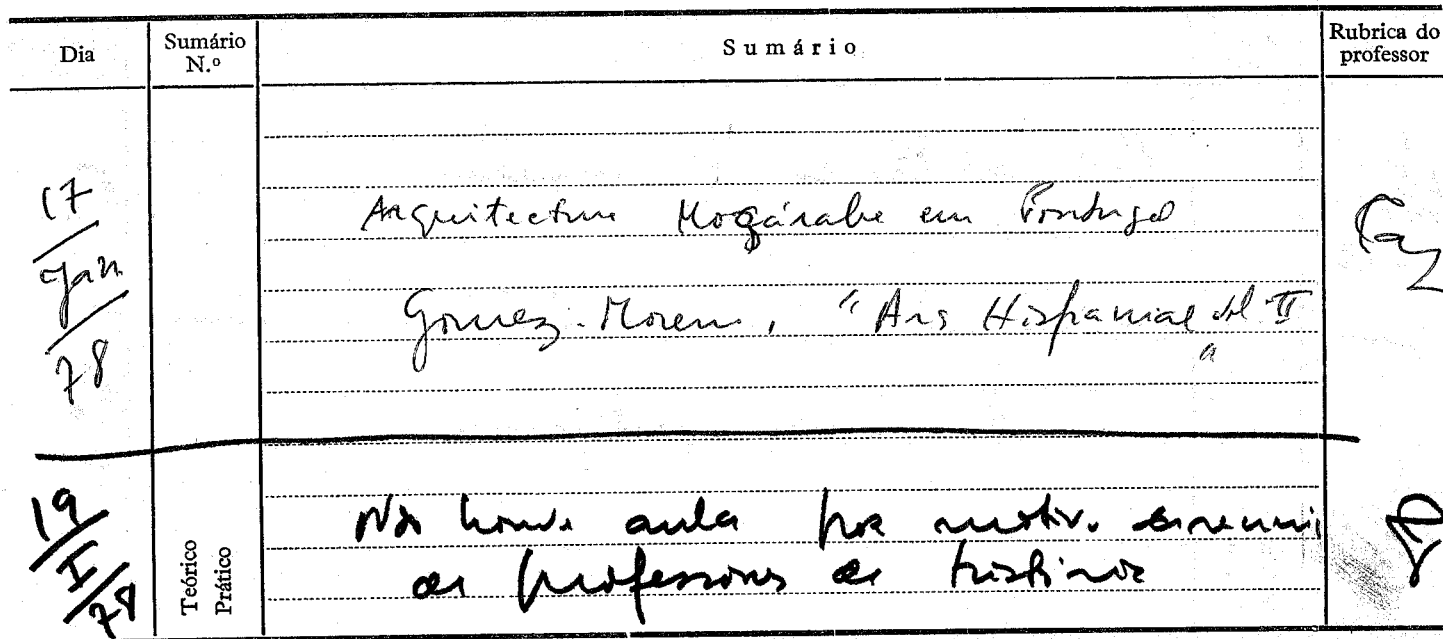 Dia
Sumário N.º
Sumário
Rubrica do professor
17
Jan
78
Arquitectura Moçárabe em Portugal
Gomez-Moreno, "Ars Hispaniae" vol II
19
I
78
Teórico
Prático
Não houve aula por motivo
de professores de